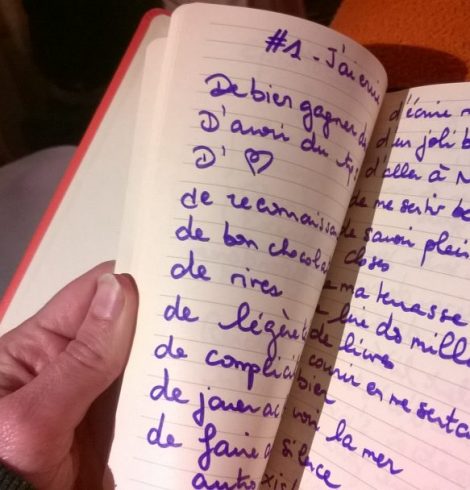 #1 - J'ai envie
De bien gagner
D'avoir du
D' ♡
de reconnaissan
de bon chocola
de rires
de légère
de complici
de jouer
de faire
d'écrire
d'un joli
d'aller à
de me sentir
de savoir plein
choses
ma terrasse
lire des mill
de livres
courir en me senta
bien
voir la mer
silence